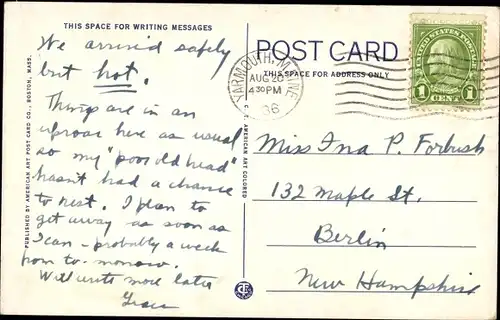 THIS SPACE FOR WRITING MESSAGES
We arrived safely
but hot.
Things are in an
uproar here as usual
so my "poor old head"
hasn't had a chance
to rest. I plan to
get away as soon as
I can - probably a week
from to-morrow.
Will write more later
Grace
PUBLISHED BY AMERICAN ART POST CARD CO., BOSTON, MASS.
POST CARD
THIS SPACE FOR ADDRESS ONLY
YARMOUTH, MAINE
AUG 20
4 30 PM
36
UNITED STATES POSTAGE
1 CENT 1
Miss Ina P. Forbush
132 Maple St.
Berlin
New Hampshire
AMERICAN ART COLORED